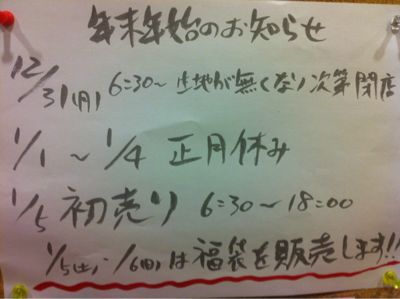 年末年始のお知らせ
12/31(月) 6:30～ 生地が無くなり次第閉店
1/1 ～ 1/4 正月休み
1/5 初売り 6:30～18:00
1/5(土)・1/6(日)は福袋を販売します!!